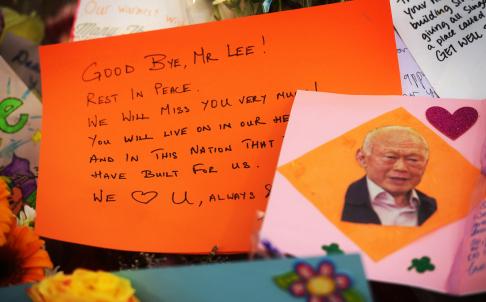 Our warmest wi
Many Th
GOOD BYE, MR LEE!
REST IN PEACE.
WE WILL MISS YOU VERY MU
YOU WILL LIVE ON IN OUR HE
AND IN THIS NATION THAT
HAVE BUILT FOR US.
WE ♡ U, ALWAYS &
your
building Si
giving all Sing
a place called
GET WELL
e